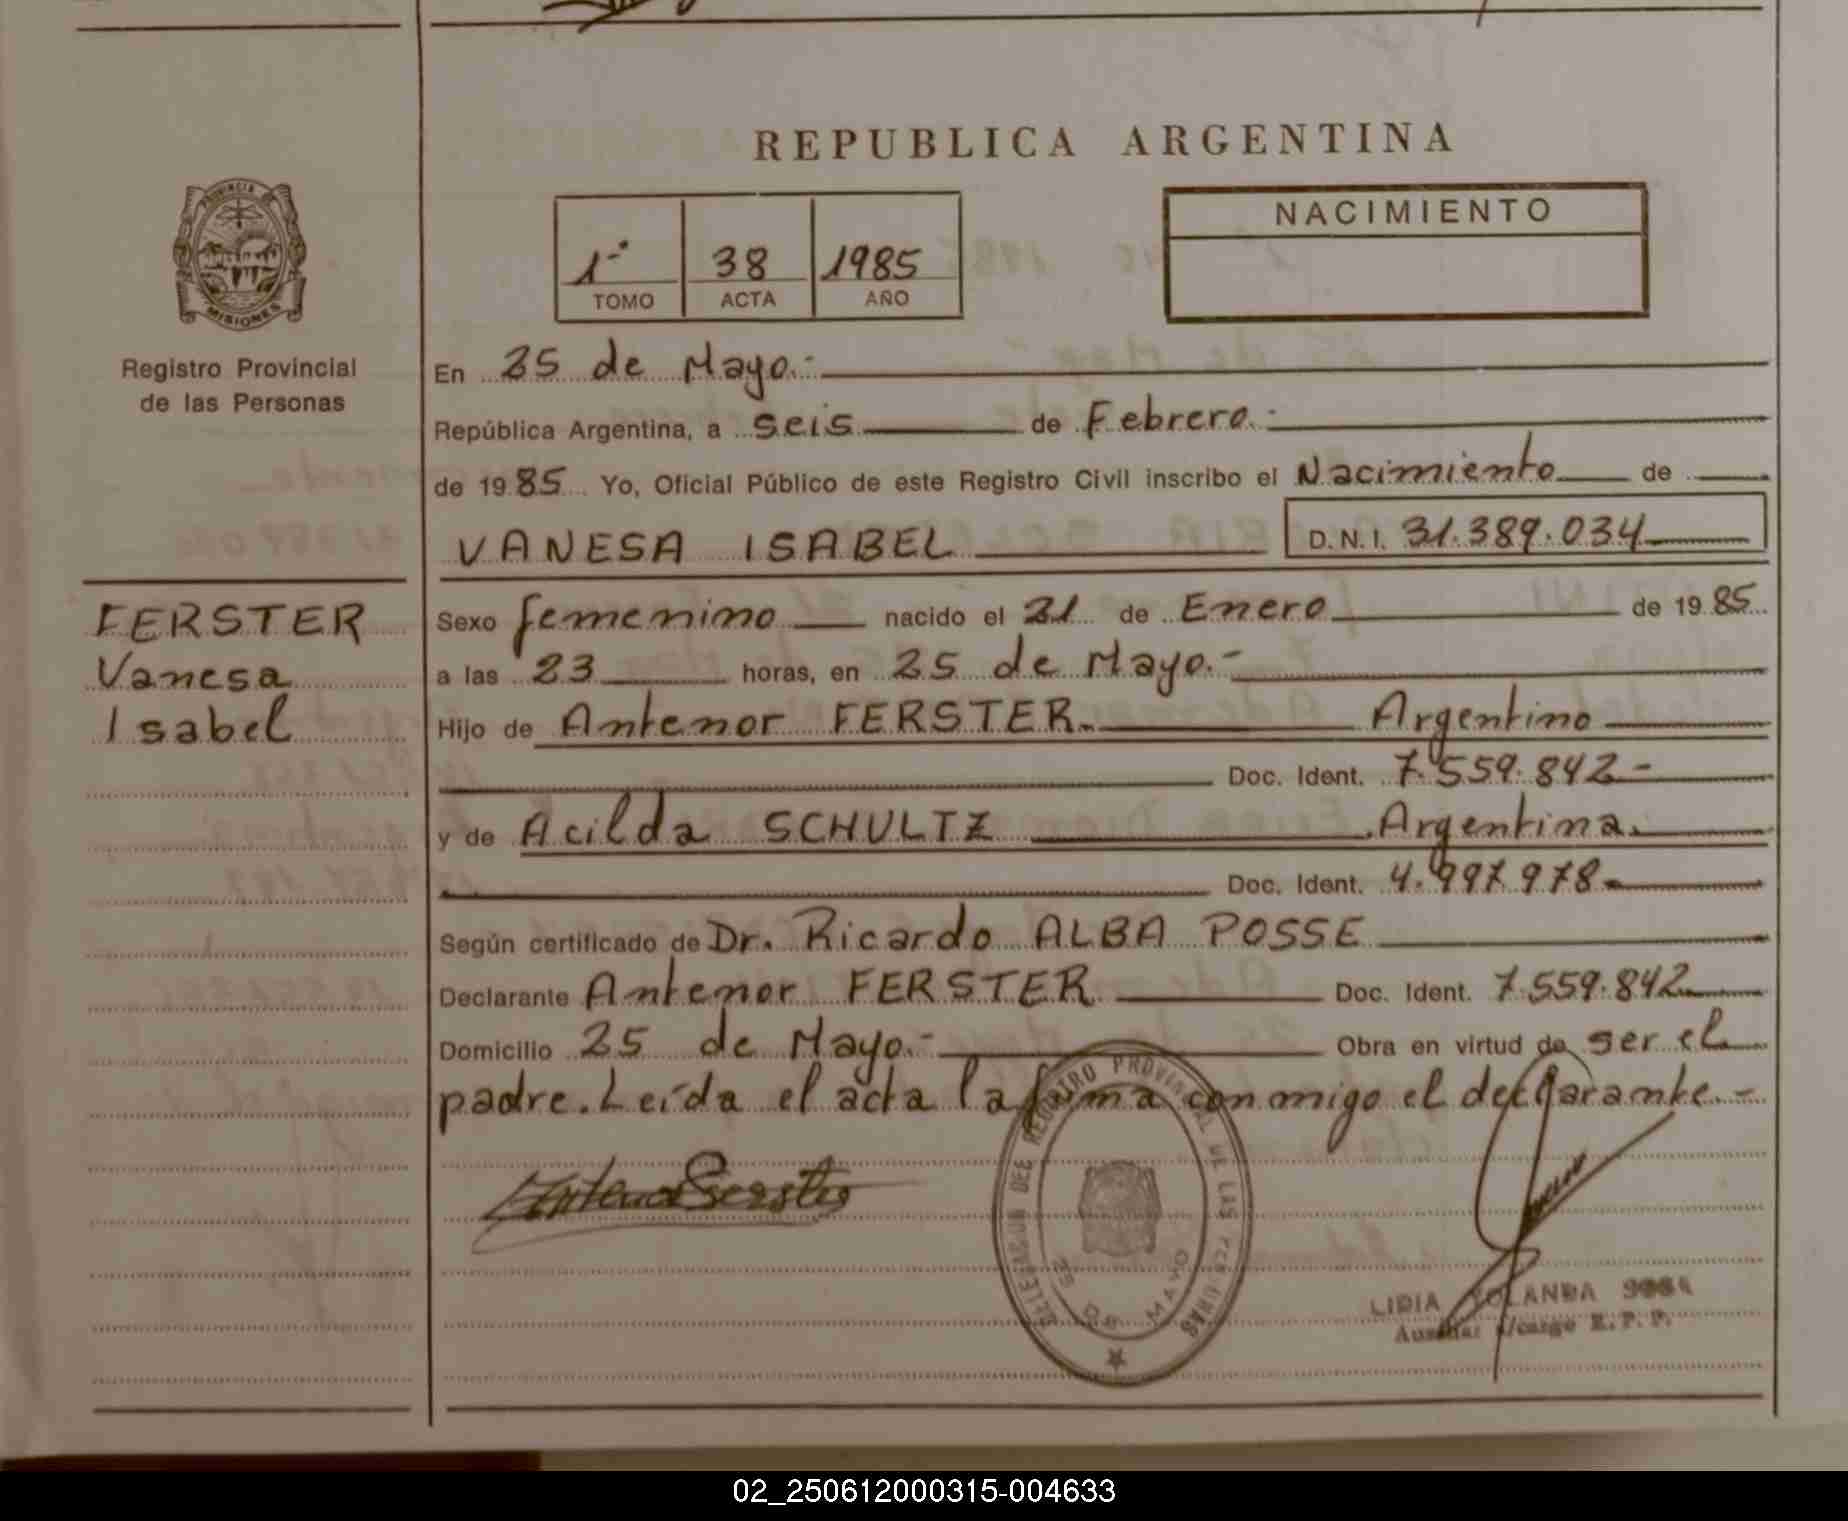 REPUBLICA ARGENTINA
PROVINCIA DE
MISIONES
Registro Provincial
de las Personas
1º
38
1985
TOMO
ACTA
AÑO
NACIMIENTO
En 25 de Mayo.-
República Argentina, a seis de Febrero.-
de 19 85 Yo, Oficial Público de este Registro Civil inscribo el Nacimiento de
VANESA ISABEL D.N.I. 31.389.034
FERSTER
Vanesa
Isabel
Sexo femenino nacido el 31 de Enero de 19 85
a las 23 horas, en 25 de Mayo.-
Hijo de Antenor FERSTER. Argentino
Doc. Ident. 7.559.842-
y de Acilda SCHULTZ Argentina.
Doc. Ident. 4.997.978-
Según certificado de Dr. Ricardo ALBA POSSE
Declarante Antenor FERSTER Doc. Ident. 7.559.842
Domicilio 25 de Mayo.- Obra en virtud de ser el
padre. Leída el acta la firma conmigo el declarante.-
Antenor Ferster
DELEGACION DEL REGISTRO PROVINCIAL DE LAS PERSONAS
25 DE MAYO
LIDIA YOLANDA
Auxiliar a/cargo R.P.P.
02_250612000315-004633